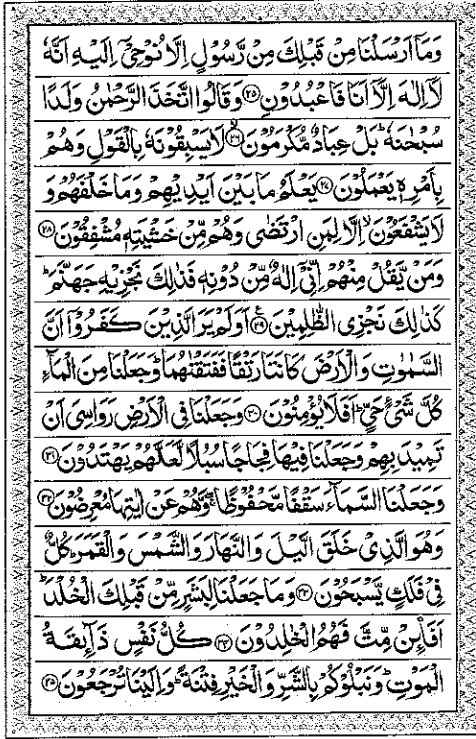 وَمَاۤ اَرْسَلْنَا مِنْ قَبْلِكَ مِنْ رَّسُوْلٍ اِلَّا نُوْحِیْۤ اِلَیْهِ اَنَّهٗ
لَاۤ اِلٰهَ اِلَّاۤ اَنَا فَاعْبُدُوْنِ ﴿۲۵﴾ وَقَالُوا اتَّخَذَ الرَّحْمٰنُ وَلَدًا
سُبْحٰنَهٗ ؕ بَلْ عِبَادٌ مُّكْرَمُوْنَ ﴿۲۶﴾ۙ لَا یَسْبِقُوْنَهٗ بِالْقَوْلِ وَهُمْ
بِاَمْرِهٖ یَعْمَلُوْنَ ﴿۲۷﴾ یَعْلَمُ مَا بَیْنَ اَیْدِیْهِمْ وَمَا خَلْفَهُمْ وَ
لَا یَشْفَعُوْنَ ۙ اِلَّا لِمَنِ ارْتَضٰی وَهُمْ مِّنْ خَشْیَتِهٖ مُشْفِقُوْنَ ﴿۲۸﴾
وَمَنْ یَّقُلْ مِنْهُمْ اِنِّیْۤ اِلٰهٌ مِّنْ دُوْنِهٖ فَذٰلِكَ نَجْزِیْهِ جَهَنَّمَ ؕ
كَذٰلِكَ نَجْزِی الظّٰلِمِیْنَ ﴿۲۹﴾ۧ اَوَلَمْ یَرَ الَّذِیْنَ كَفَرُوْۤا اَنَّ
السَّمٰوٰتِ وَالْاَرْضَ كَانَتَا رَتْقًا فَفَتَقْنٰهُمَا ؕ وَجَعَلْنَا مِنَ الْمَآءِ
كُلَّ شَیْءٍ حَیٍّ ؕ اَفَلَا یُؤْمِنُوْنَ ﴿۳۰﴾ وَجَعَلْنَا فِی الْاَرْضِ رَوَاسِیَ اَنْ
تَمِیْدَ بِهِمْ وَجَعَلْنَا فِیْهَا فِجَاجًا سُبُلًا لَّعَلَّهُمْ یَهْتَدُوْنَ ﴿۳۱﴾
وَجَعَلْنَا السَّمَآءَ سَقْفًا مَّحْفُوْظًا ۚۖ وَّهُمْ عَنْ اٰیٰتِهَا مُعْرِضُوْنَ ﴿۳۲﴾
وَهُوَ الَّذِیْ خَلَقَ الَّیْلَ وَالنَّهَارَ وَالشَّمْسَ وَالْقَمَرَ ؕ كُلٌّ
فِیْ فَلَكٍ یَّسْبَحُوْنَ ﴿۳۳﴾ وَمَا جَعَلْنَا لِبَشَرٍ مِّنْ قَبْلِكَ الْخُلْدَ ؕ
اَفَا۠ئِنْ مِّتَّ فَهُمُ الْخٰلِدُوْنَ ﴿۳۴﴾ كُلُّ نَفْسٍ ذَآئِقَةُ
الْمَوْتِ ؕ وَنَبْلُوْكُمْ بِالشَّرِّ وَالْخَیْرِ فِتْنَةً ؕ وَاِلَیْنَا تُرْجَعُوْنَ ﴿۳۵﴾